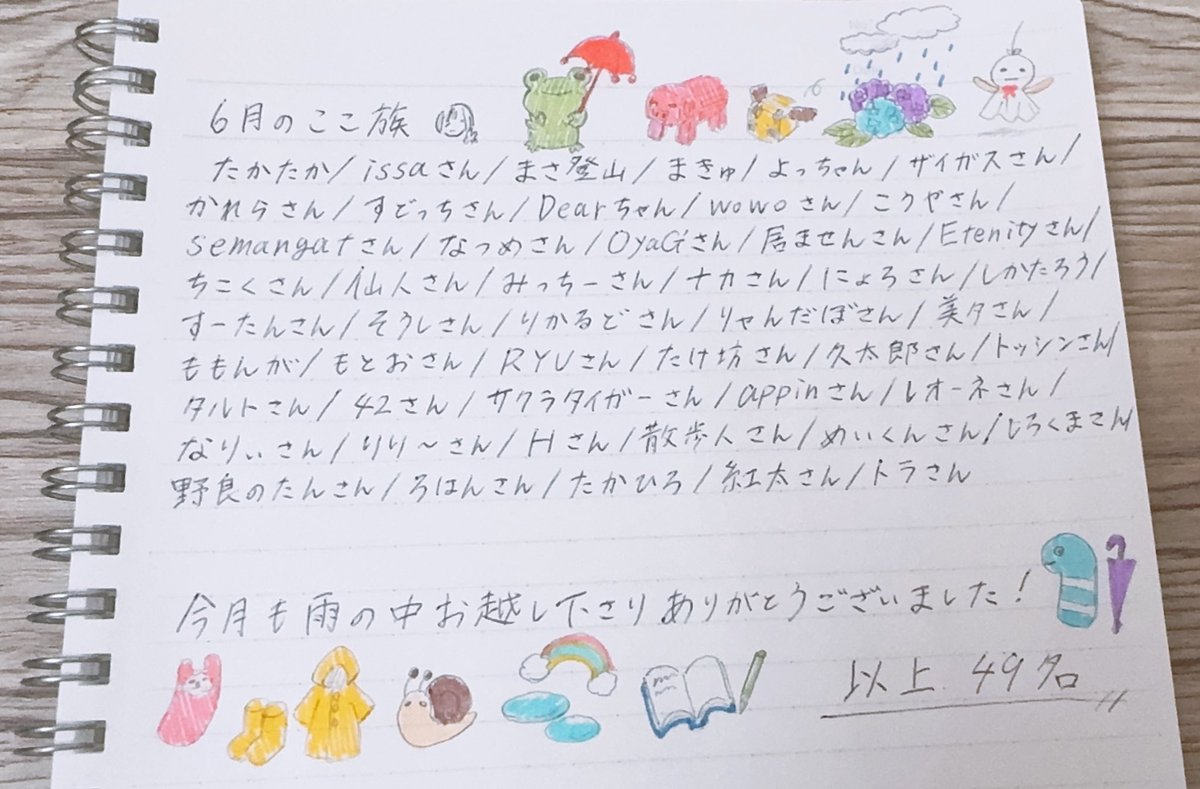 6月のここ族
たかたか/issaさん/まさ登山/まきゅ/よっちゃん/ザイガスさん/
かれらさん/すどっちさん/Dearちゃん/wowoさん/こうやさん/
semangatさん/なつめさん/OyaGさん/居ませんさん/Etenityさん/
ちこくさん/仙人さん/みっちーさん/ナカさん/にょろさん/しかたろう/
すーたんさん/そうしさん/りかるどさん/りゃんだぼさん/美夕さん/
ももんが/もとおさん/RYUさん/たけ坊さん/久太郎さん/トッシンさん/
タルトさん/42さん/サクラタイガーさん/appinさん/レオーネさん/
なりぃさん/りり〜さん/Hさん/散歩人さん/めいくんさん/しろくまさん/
野良のたんさん/ろはんさん/たかひろ/紅太さん/トラさん
今月も雨の中お越し下さりありがとうございました!
以上 49名